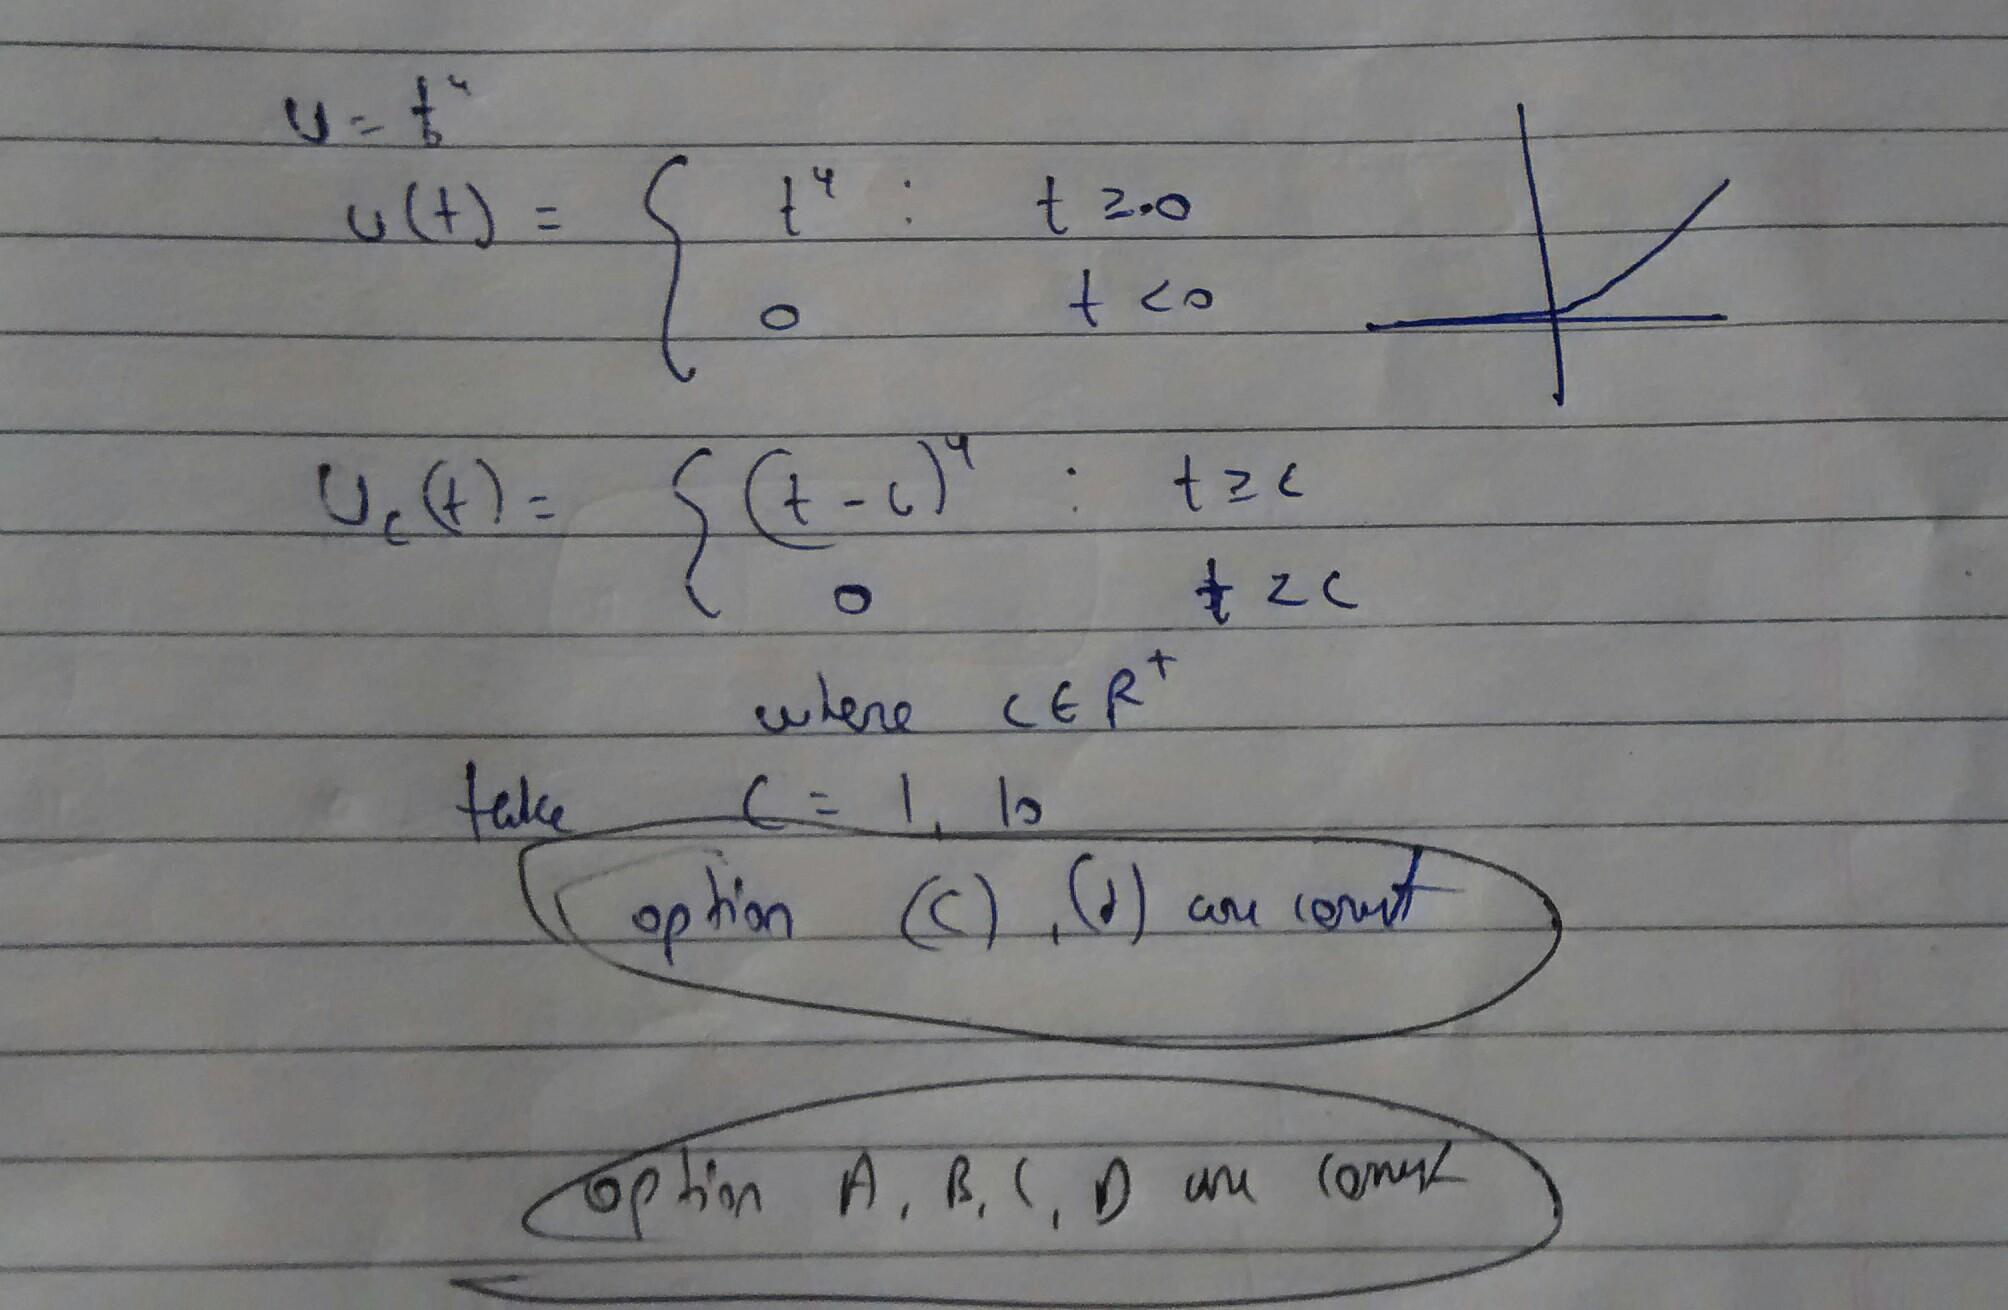 u = t⁴
u(t) = { t⁴ : t ≥ 0
0 t < 0
U_c(t) = { (t - c)⁴ : t ≥ c
0 t ≤ c
where c ∈ R⁺
take c = 1, 10
option (c), (d) are correct
option A, B, C, D are correct